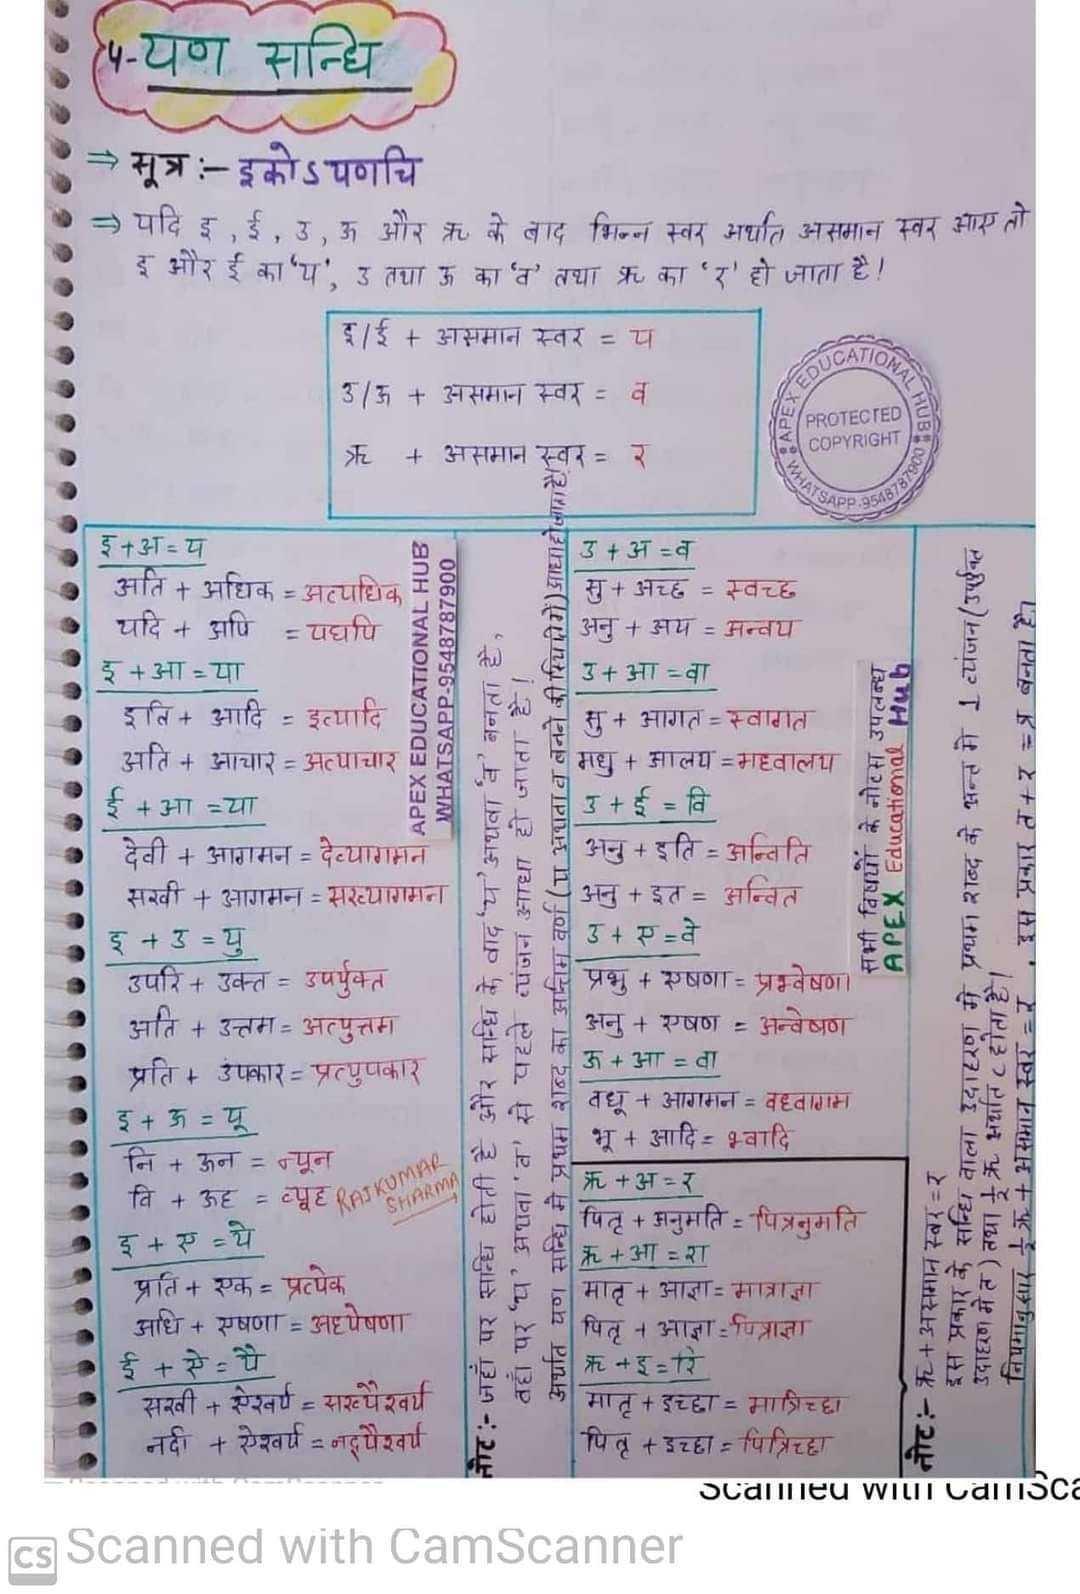 ५-यण सन्धि
⇒ सूत्र :- इकोऽयणचि
⇒ यदि इ, ई, उ, ऊ और ऋ के बाद भिन्न स्वर अर्थात असमान स्वर आए तो
इ और ई का 'य', उ तथा ऊ का 'व' तथा ऋ का 'र' हो जाता है!
इ/ई + असमान स्वर = य
उ/ऊ + असमान स्वर = व
ऋ + असमान स्वर = र
APEX EDUCATIONAL HUB
PROTECTED
COPYRIGHT
WHATSAPP-9548787900
इ+अ=य
अति + अधिक = अत्यधिक
यदि + अपि = यद्यपि
इ+आ=या
इति + आदि = इत्यादि
अति + आचार = अत्याचार
ई+आ=या
देवी + आगमन = देव्यागमन
सखी + आगमन = सख्यागमन
इ+उ=यु
उपरि + उक्त = उपर्युक्त
अति + उत्तम = अत्युत्तम
प्रति + उपकार = प्रत्युपकार
इ+ऊ=यू
नि + ऊन = न्यून
वि + ऊह = व्यूह
RAJKUMAR
SHARMA
इ+ए=ये
प्रति + एक = प्रत्येक
अधि + एषणा = अध्येषणा
ई+ऐ=यै
सखी + ऐश्वर्य = सख्यैश्वर्य
नदी + ऐश्वर्य = नद्यैश्वर्य
APEX EDUCATIONAL HUB
WHATSAPP-9548787900
नोट:- जहाँ पर सन्धि होती है और सन्धि के बाद 'य' अथवा 'व' बनता है,
वहाँ पर 'य' अथवा 'व' से पहले व्यंजन आधा हो जाता है!
अर्थात यण सन्धि में प्रथम शब्द का अन्तिम वर्ण (य अथवा व बनने की स्थिति में) आधा हो जाता है!
उ+अ=व
सु + अच्छ = स्वच्छ
अनु + अय = अन्वय
उ+आ=वा
सु + आगत = स्वागत
मधु + आलय = मध्वालय
उ+ई=वि
अनु + इति = अन्विति
अनु + इत = अन्वित
उ+ए=वे
प्रभु + एषणा = प्रभ्वेषणा
अनु + एषण = अन्वेषण
ऊ+आ=वा
वधू + आगमन = वध्वागम
भू + आदि = भ्वादि
ऋ+अ=र
पितृ + अनुमति = पित्रनुमति
ऋ+आ=रा
मातृ + आज्ञा = मात्राज्ञा
पितृ + आज्ञा = पित्राज्ञा
ऋ+इ=रि
मातृ + इच्छा = मात्रिच्छा
पितृ + इच्छा = पित्रिच्छा
सभी विषयों के नोट्स उपलब्ध
APEX Educational Hub
नोट:- ऋ+असमान स्वर=र
इस प्रकार के सन्धि वाला उदाहरण में प्रथम शब्द के अन्त में 1 व्यंजन (उपर्युक्त
उदाहरण में त) तथा ½ ऋ अर्थात ८ होता है!
नियमानुसार ½ ऋ + असमान स्वर = र, इस प्रकार त+र = त्र बनता है।
Scanned with CamSca
CS Scanned with CamScanner